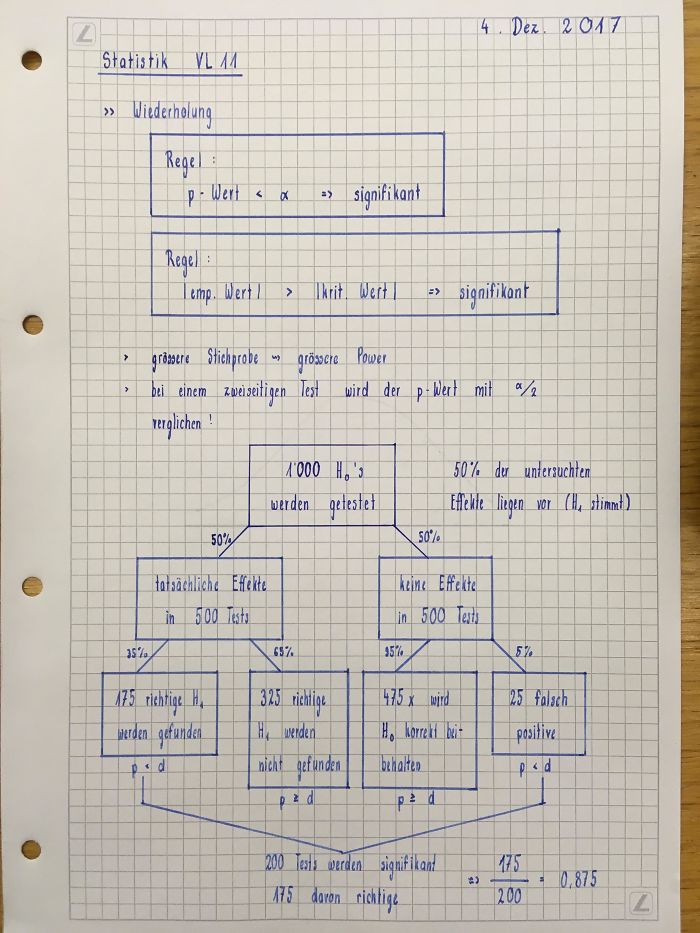 4. Dez. 2017
Statistik VL 11
>> Wiederholung
Regel :
p - Wert < α => signifikant
Regel :
|emp. Wert| > |krit. Wert| => signifikant
> grössere Stichprobe ~> grössere Power
> bei einem zweiseitigen Test wird der p-Wert mit α/2
verglichen !
1'000 H₀'s
werden getestet
50% der untersuchten
Effekte liegen vor (H₁ stimmt)
50%
50%
tatsächliche Effekte
in 500 Tests
keine Effekte
in 500 Tests
35%
65%
95%
5%
175 richtige H₁
werden gefunden
325 richtige
H₁ werden
nicht gefunden
475 x wird
H₀ korrekt bei-
behalten
25 falsch
positive
p < α
p ≥ α
p ≥ α
p < α
200 Tests werden signifikant
175 davon richtige
=> 175/200 = 0,875